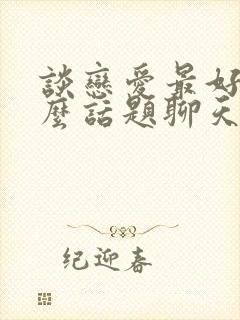 談戀愛最好
麼話題聊天
纪迎春